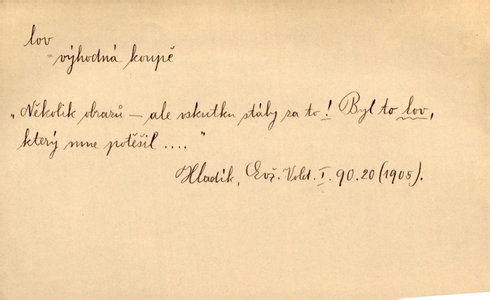 lov
= výhodná koupě
„Několik obrazů — ale vskutku stály za to! Byl to lov,
který mne potěšil .... "
Hladík, Evž. Vold. I. 90.20 (1905).